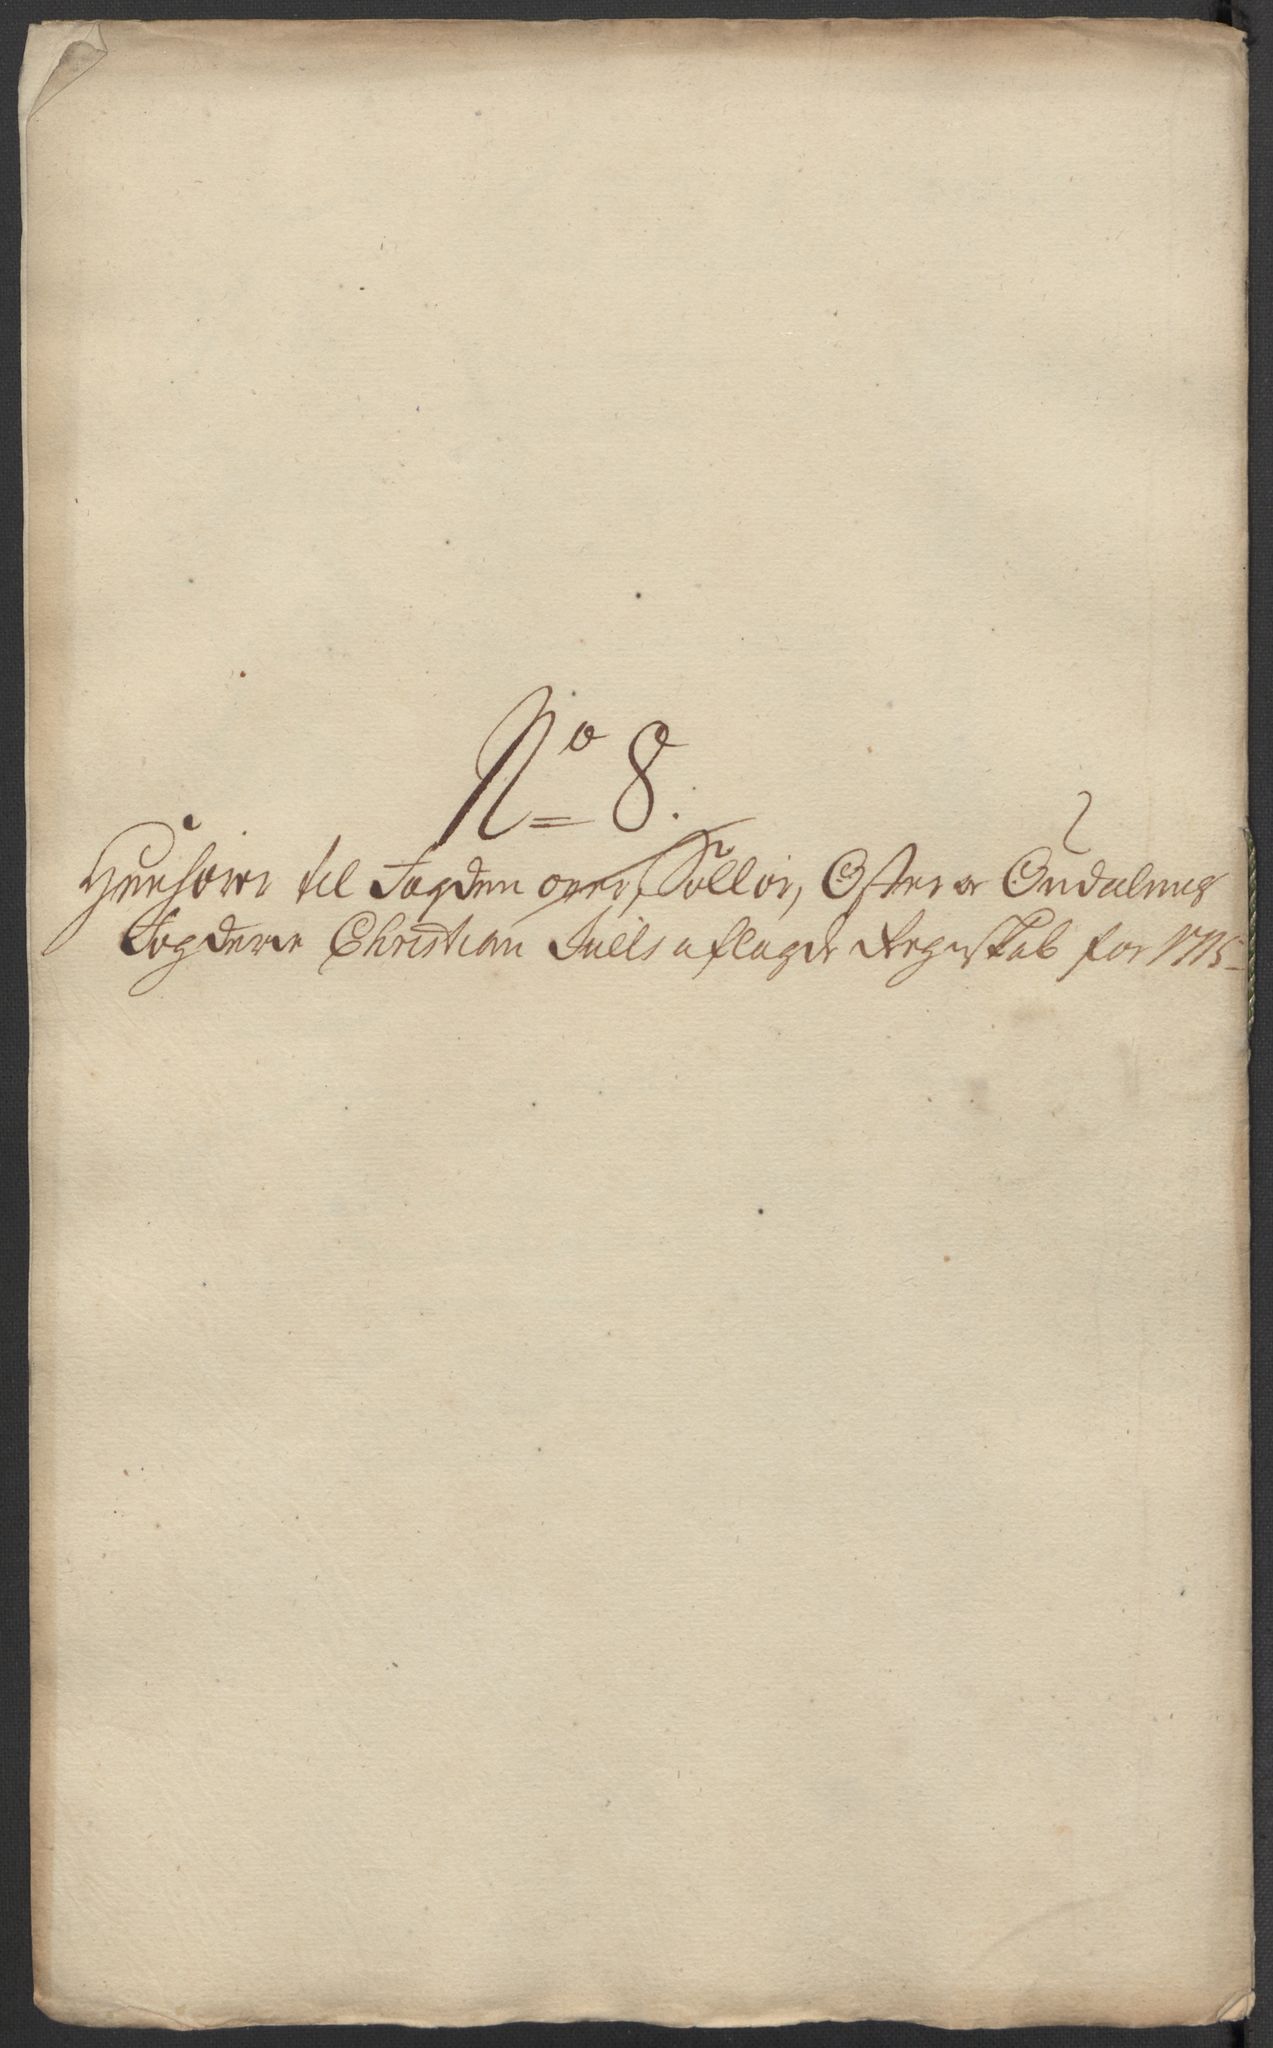 No 8.
Henhører til Fogden over Sollør, Øster og Oudalens
Fogderie Christian Juells aflagde Regnskab for 1715